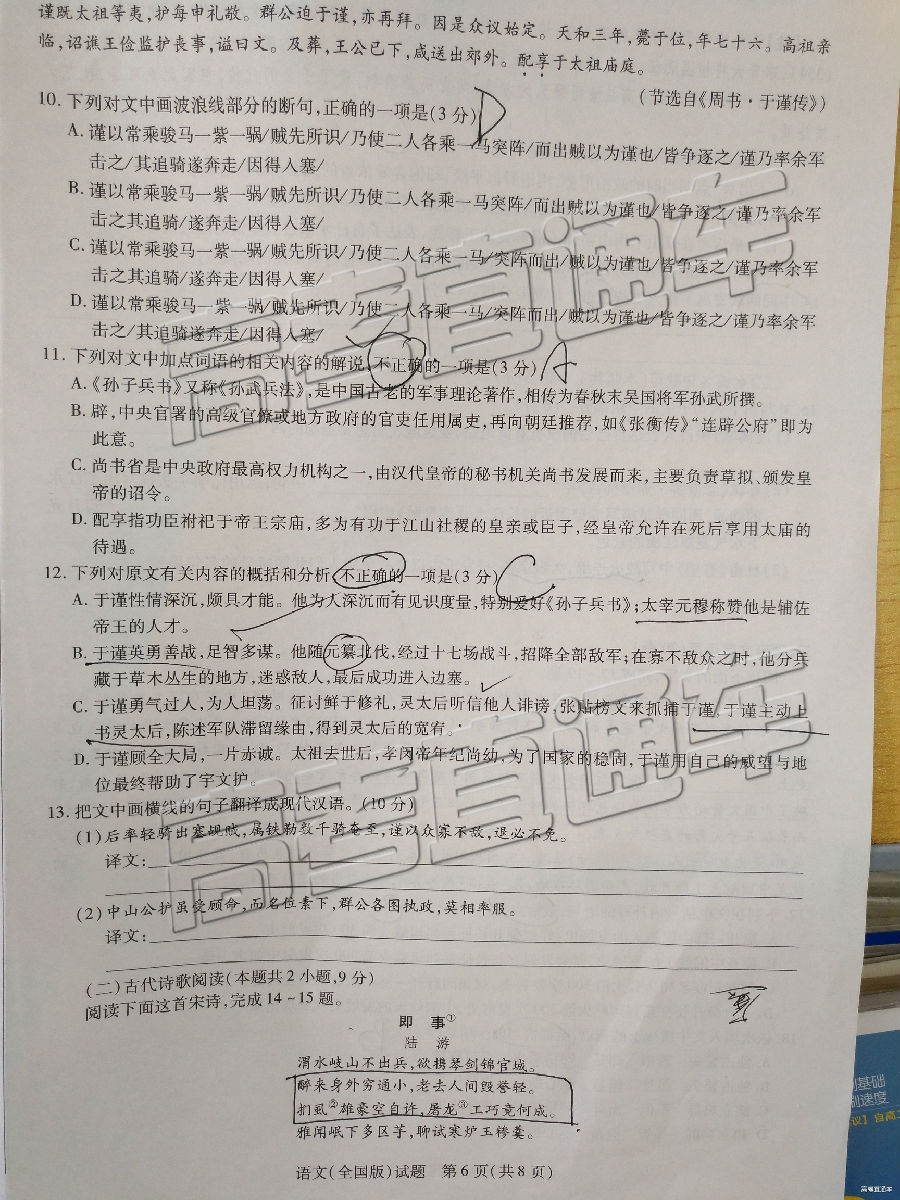 谨既太祖等夷，护每申礼敬。群公迫于谨，亦再拜。因是众议始定。天和三年，薨于位，年七十六。高祖亲
临，诏谯王俭监护丧事，谥曰文。及葬，王公已下，咸送出郊外。配享于太祖庙庭。
（节选自《周书·于谨传》）
10. 下列对文中画波浪线部分的断句，正确的一项是(3 分) D
A. 谨以常乘骏马一紫一䯄/贼先所识/乃使二人各乘一马突阵/而出贼以为谨也/皆争逐之/谨乃率余军
击之/其追骑遂奔走/因得入塞/
B. 谨以常乘骏马一紫一䯄/贼先所识/乃使二人各乘一马突阵/而出贼以为谨也/皆争逐之/谨乃率余军
击之其追骑/遂奔走/因得入塞/
C. 谨以常乘骏马一紫一䯄/贼先所识/乃使二人各乘一马/突阵而出/贼以为谨也/皆争逐之/谨乃率余军
击之其追骑/遂奔走/因得入塞/
D. 谨以常乘骏马一紫一䯄/贼先所识/乃使二人各乘一马/突阵而出/贼以为谨也/皆争逐之/谨乃率余军
击之/其追骑遂奔走/因得入塞/
11. 下列对文中加点词语的相关内容的解说，不正确的一项是(3 分) A
A.《孙子兵书》又称《孙武兵法》，是中国古老的军事理论著作，相传为春秋末吴国将军孙武所撰。
B. 辟，中央官署的高级官僚或地方政府的官吏任用属吏，再向朝廷推荐，如《张衡传》“连辟公府”即为
此意。
C. 尚书省是中央政府最高权力机构之一，由汉代皇帝的秘书机关尚书发展而来，主要负责草拟、颁发皇
帝的诏令。
D. 配享指功臣祔祀于帝王宗庙，多为有功于江山社稷的皇亲或臣子，经皇帝允许在死后享用太庙的
待遇。
12. 下列对原文有关内容的概括和分析，不正确的一项是(3 分) C
A. 于谨性情深沉，颇具才能。他为人深沉而有见识度量，特别爱好《孙子兵书》；太宰元穆称赞他是辅佐
帝王的人才。
B. 于谨英勇善战，足智多谋。他随元纂北伐，经过十七场战斗，招降全部敌军；在寡不敌众之时，他分兵
藏于草木丛生的地方，迷惑敌人，最后成功进入边塞。
C. 于谨勇气过人，为人坦荡。征讨鲜于修礼，灵太后听信他人诽谤，张贴榜文来抓捕于谨，于谨主动上
书灵太后，陈述军队滞留缘由，得到灵太后的宽宥。
D. 于谨顾全大局，一片赤诚。太祖去世后，孝闵帝年纪尚幼，为了国家的稳固，于谨用自己的威望与地
位最终帮助了宇文护。
13. 把文中画横线的句子翻译成现代汉语。(10 分)
(1)后率轻骑出塞觇贼，属铁勒数千骑奄至，谨以众寡不敌，退必不免。
译文：
(2)中山公护虽受顾命，而名位素下，群公各图执政，莫相率服。
译文：
(二)古代诗歌阅读(本题共 2 小题，9 分)
阅读下面这首宋诗，完成 14～15 题。
即 事①
陆 游
渭水岐山不出兵，欲携琴剑锦官城。
醉来身外穷通小，老去人间毁誉轻。
扪虱②雄豪空自许，屠龙③工巧竟何成。
雅闻岷下多区芋，聊试寒炉玉糁羹。
语文(全国版)试题 第 6 页(共 8 页)
高考直通车
高考直通车
高考直通车
基础
速度
高考直通车